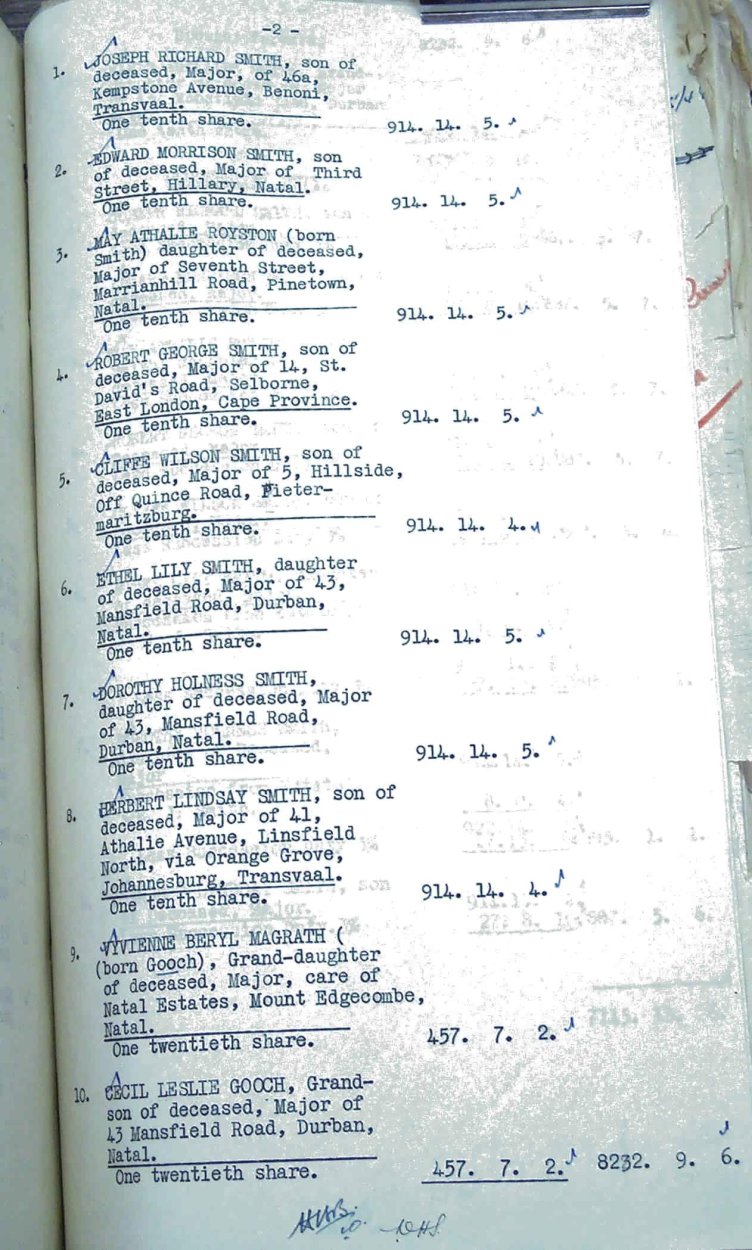 -2-
1. JOSEPH RICHARD SMITH, son of
deceased, Major, of 46a,
Kempstone Avenue, Benoni,
Transvaal.
One tenth share. 914. 14. 5.
2. EDWARD MORRISON SMITH, son
of deceased, Major of Third
Street, Hillary, Natal.
One tenth share. 914. 14. 5.
3. MAY ATHALIE ROYSTON (born
Smith) daughter of deceased,
Major of Seventh Street,
Marrianhill Road, Pinetown,
Natal.
One tenth share. 914. 14. 5.
4. ROBERT GEORGE SMITH, son of
deceased, Major of 14, St.
David's Road, Selborne,
East London, Cape Province.
One tenth share. 914. 14. 5.
5. CLIFFE WILSON SMITH, son of
deceased, Major of 5, Hillside,
Off Quince Road, Pieter-
maritzburg.
One tenth share. 914. 14. 4.
6. ETHEL LILY SMITH, daughter
of deceased, Major of 43,
Mansfield Road, Durban,
Natal.
One tenth share. 914. 14. 5.
7. DOROTHY HOLNESS SMITH,
daughter of deceased, Major
of 43, Mansfield Road,
Durban, Natal.
One tenth share. 914. 14. 5.
8. HERBERT LINDSAY SMITH, son of
deceased, Major of 41,
Athalie Avenue, Linsfield
North, via Orange Grove,
Johannesburg, Transvaal.
One tenth share. 914. 14. 4.
9. VYVIENNE BERYL MAGRATH (
(born Gooch), Grand-daughter
of deceased, Major, care of
Natal Estates, Mount Edgecombe,
Natal.
One twentieth share. 457. 7. 2.
10. CECIL LESLIE GOOCH, Grand-
son of deceased, Major of
43 Mansfield Road, Durban,
Natal.
One twentieth share. 457. 7. 2. 8232. 9. 6.